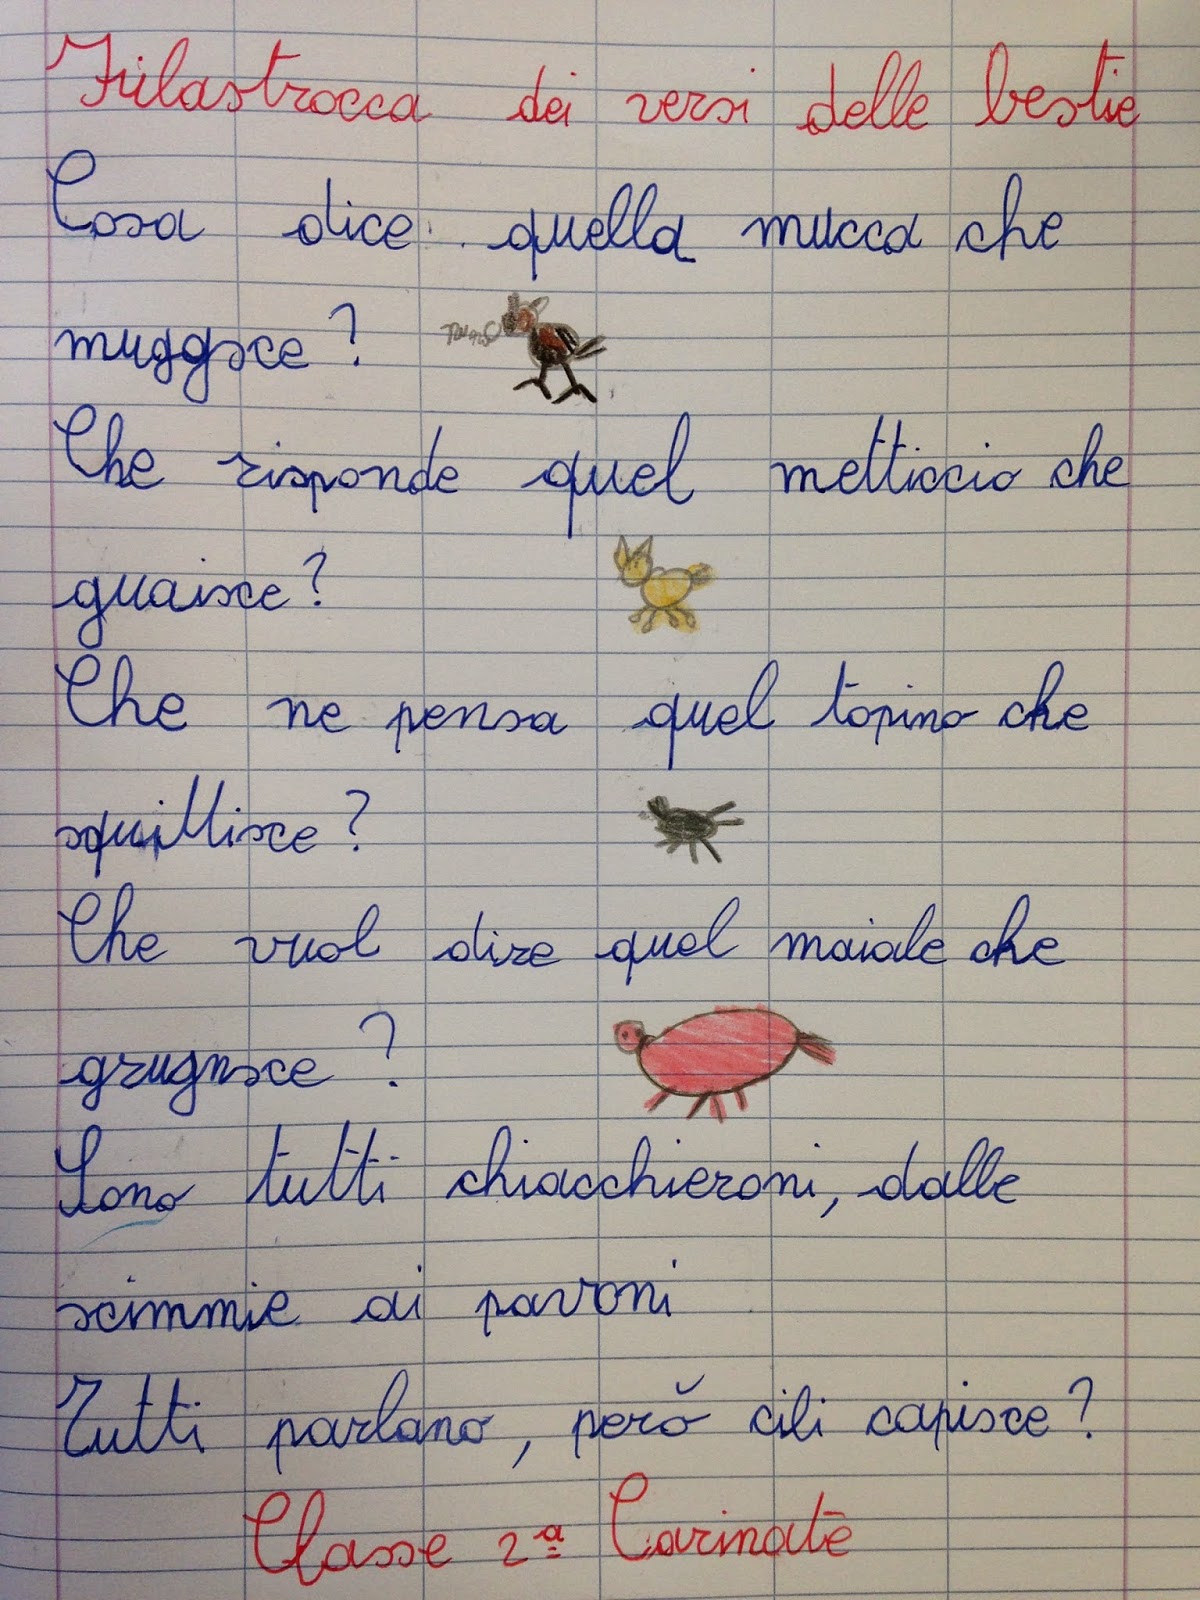 Filastrocca dei versi delle bestie
Cosa dice quella mucca che
muggisce?
Che risponde quel metticcio che
guaisce?
Che ne pensa quel topino che
squittisce?
Che vuol dire quel maiale che
grugnisce?
Sono tutti chiacchieroni, dalle
scimmie ai pavoni
Tutti parlano, però cili capisce?
Classe 2ª Carinatè